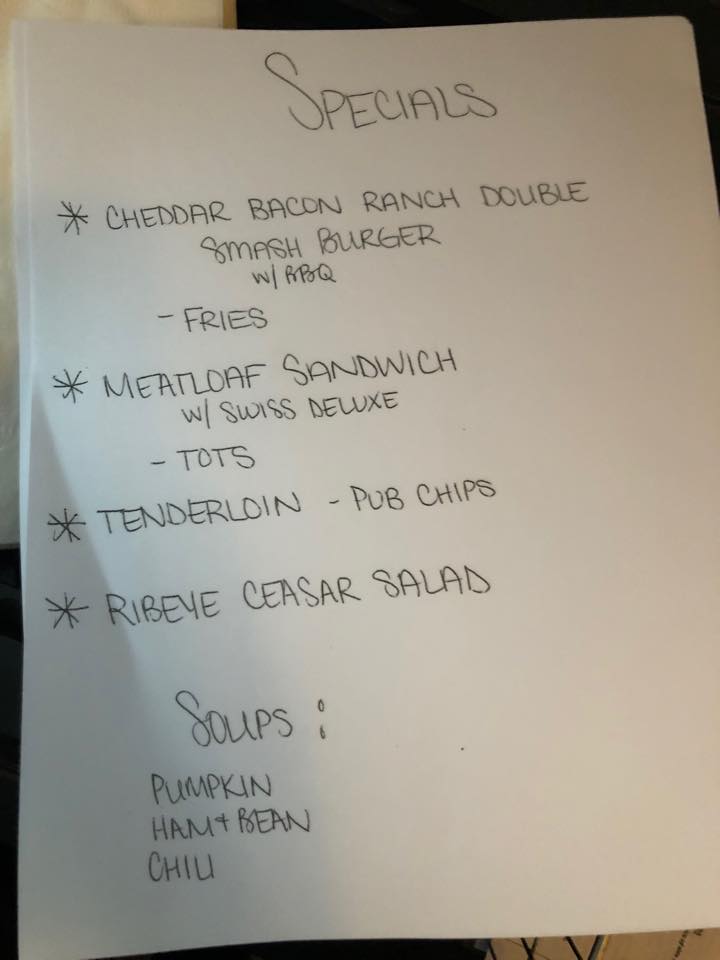 SPECIALS
* CHEDDAR BACON RANCH DOUBLE
SMASH BURGER
W/ BBQ
- FRIES
* MEATLOAF SANDWICH
W/ SWISS DELUXE
- TOTS
* TENDERLOIN - PUB CHIPS
* RIBEYE CEASAR SALAD
SOUPS :
PUMPKIN
HAM + BEAN
CHILI